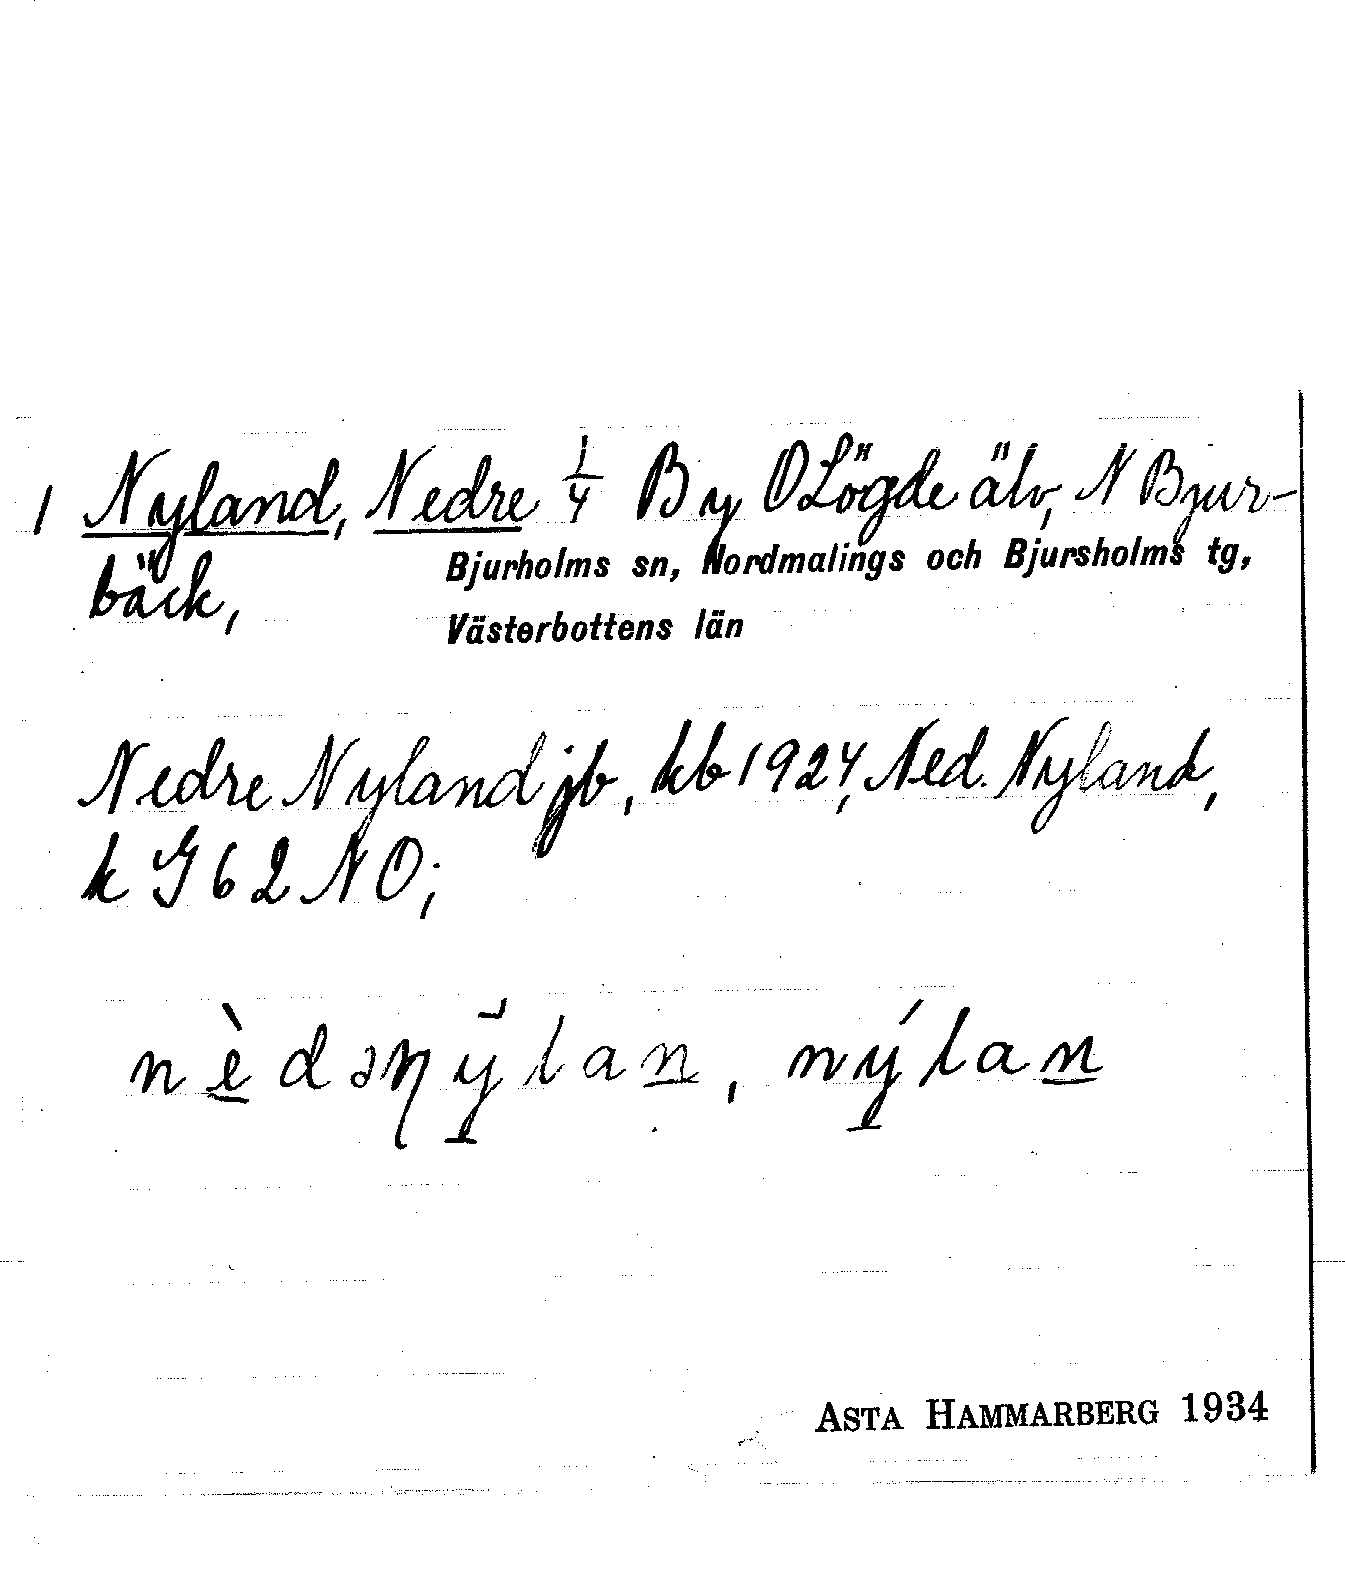 1 Nyland, Nedre 1/4 By O Lögde älv, N Bjur-
bäck,
Bjurholms sn, Nordmalings och Bjursholms tg,
Västerbottens län
Nedre Nyland jb, kb 1924, Ned. Nyland,
k G62NO;
nèdəŋȳlan, nýlan
ASTA HAMMARBERG 1934